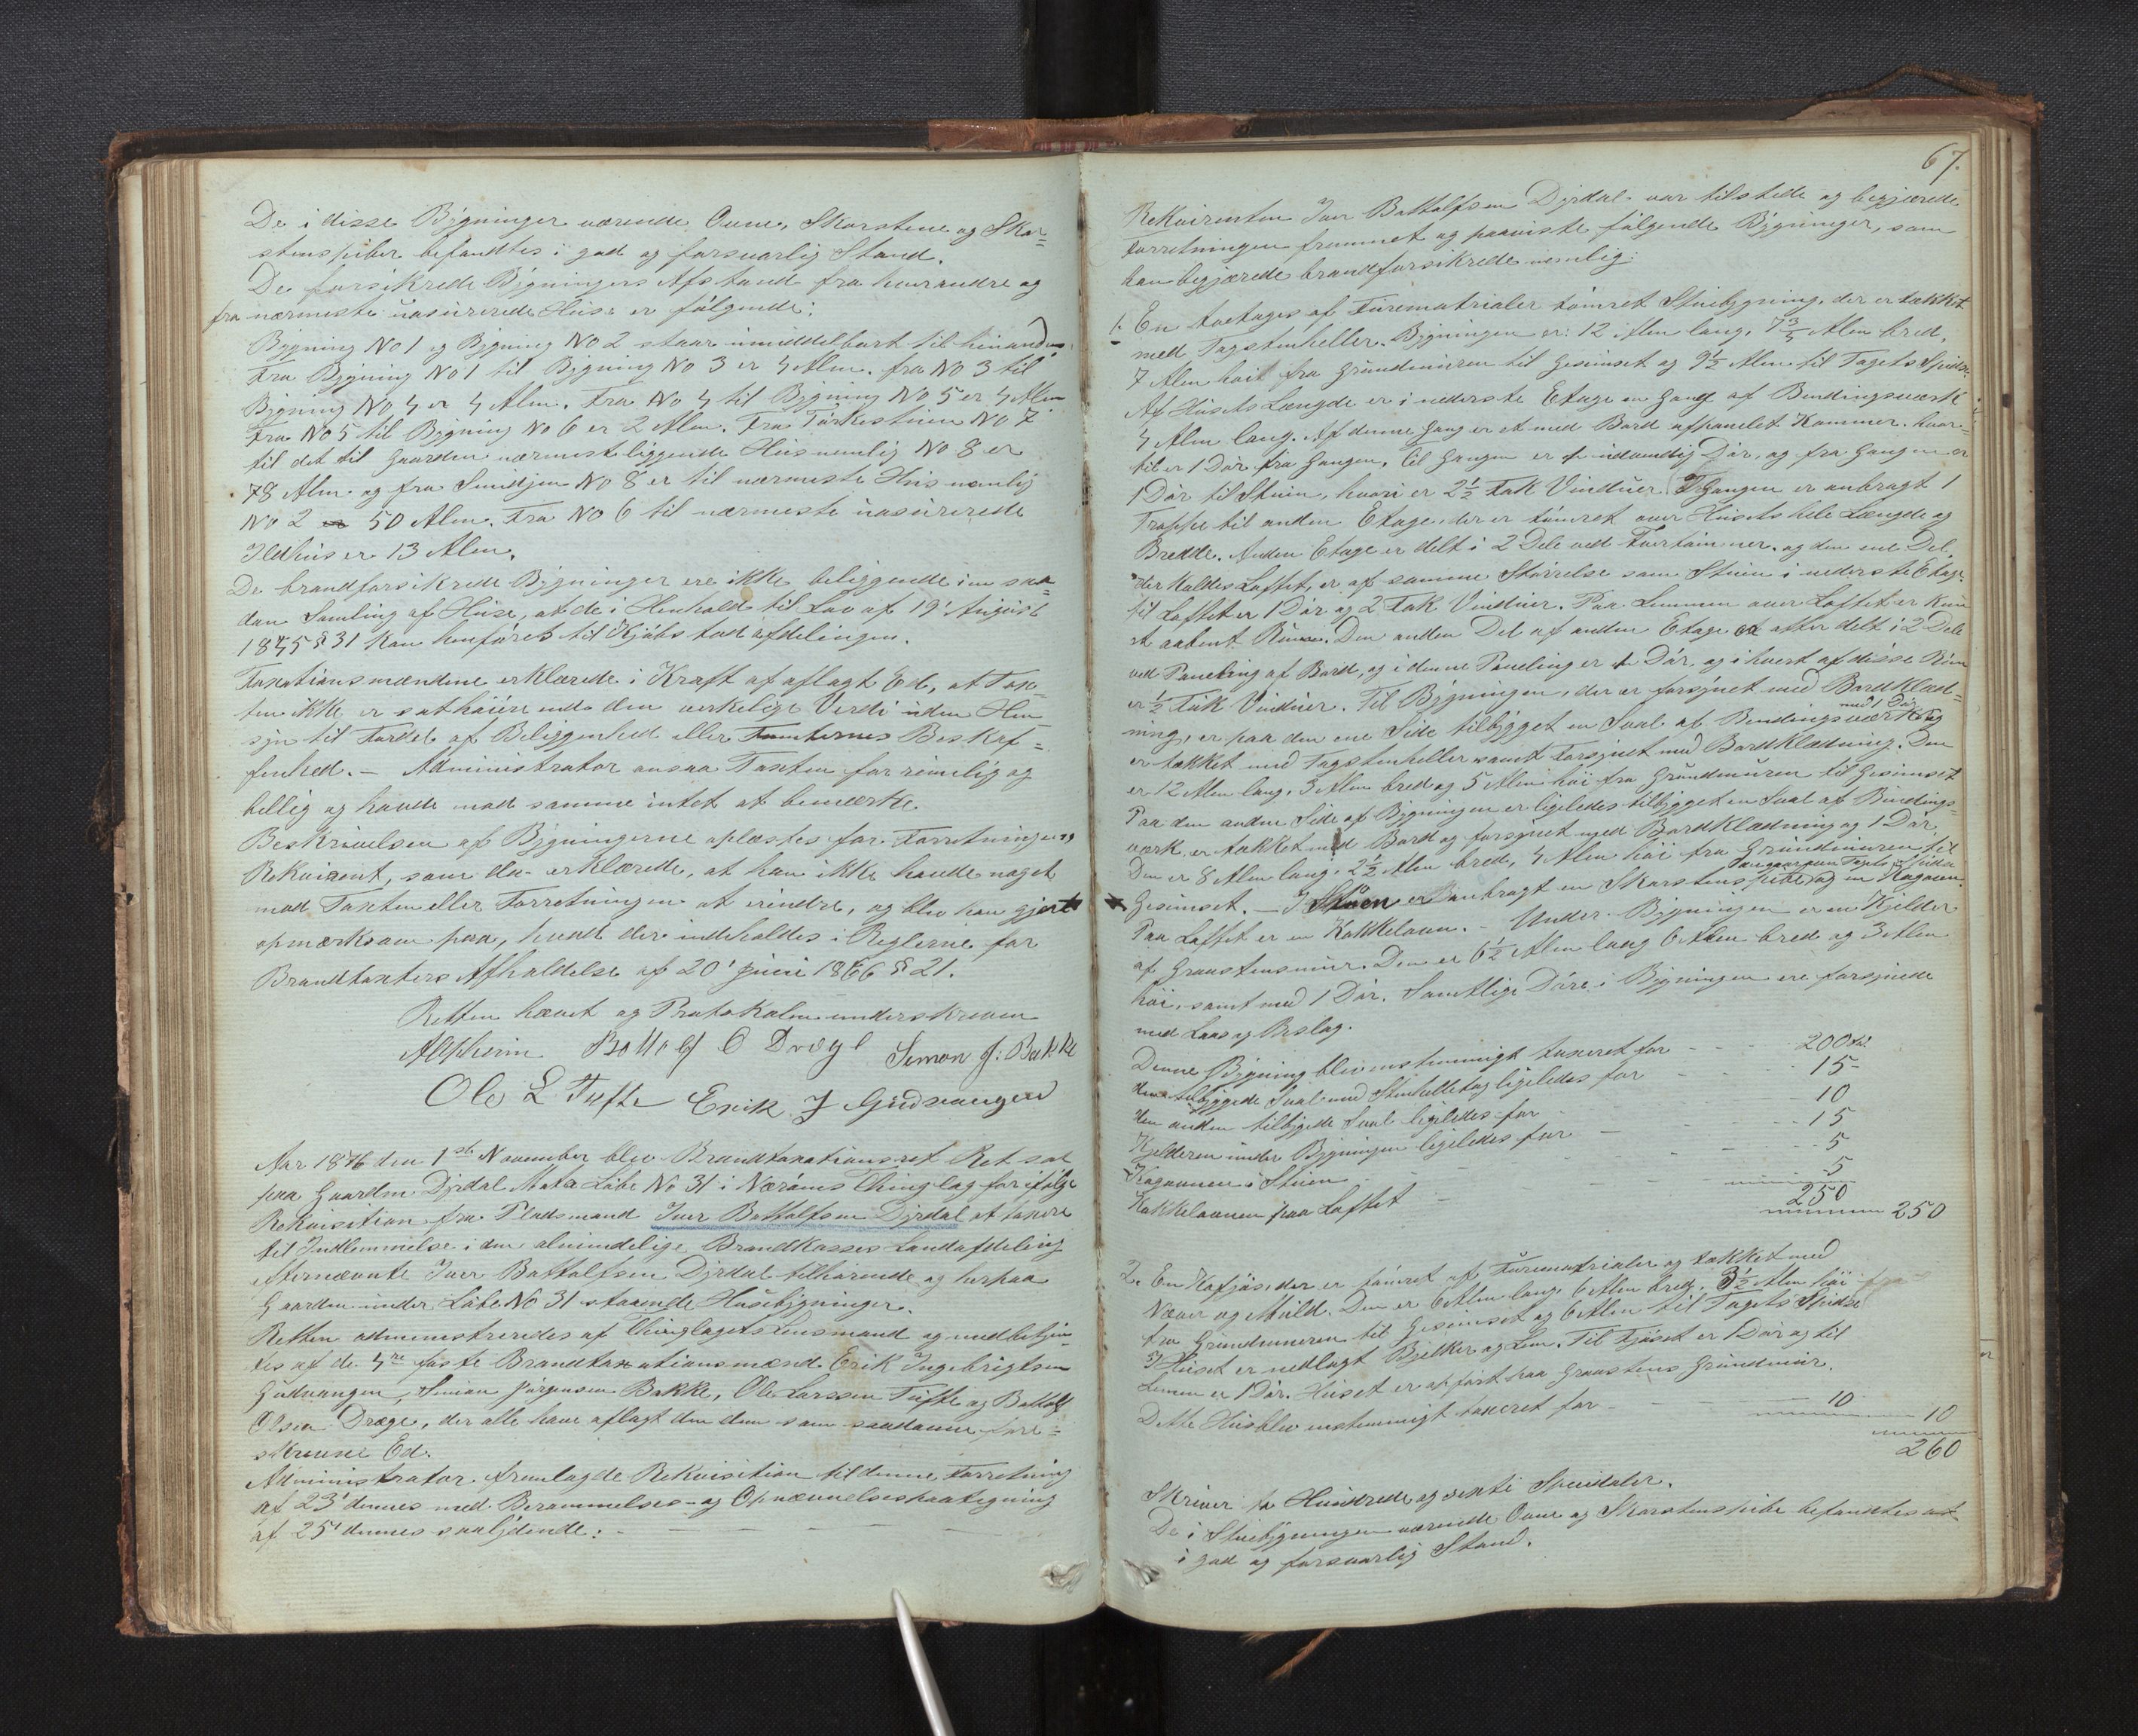 De i disse Bygninger værende Ovne, Skorstene og Skor=
stenspiber befandtes i god og forsvarlig Stand.
De forsikrede Bygningers Afstand fra hverandre og
fra nærmeste uasurerede Huse er følgende:
Bygning No 1 og Bygning No 2 staar umiddelbart til hinanden.
Fra Bygning No 1 til Bygning No 3 er 4 Alen. fra No 3 til
Bygning No 4 er 4 Alen. Fra No 4 til Bygning No 5 er 4 Alen
Fra No 5 til Bygning No 6 er 2 Alen. Fra Tørkestuen No 7
til det til Gaarden nærmest liggende Hus nemlig No 8 er
78 Alen og fra Smidjen No 8 er til nærmeste Hus nemlig
No 2 50 Alen. Fra No 6 til nærmeste uasurerede
Ildhus er 13 Alen.
De brandforsikrede Bygninger ere ikke beliggende i en saa=
dan Samling af Huse, at de i Henhold til Lov af 19' August
1845 § 31 kan henføres til Kjøbstadafdelingen.
Taxationsmændene erklærede i Kraft af aflagt Ed, at Tax=
ten ikke er sat høiere end den verkelige Verdi uden Hen
syn til Fordel af Beliggenhed eller Tomternes Beskaf=
fenhed. - Administrator ansaa Taxten for rimelig og
billig og havde mod samme intet at bemærke.
Beskrivelsen af Bygningerne oplæstes for Forretningens
Rekvirent, som da erklærede, at han ikke havde noget
mod Taxten eller Forretningen at erindre, og blev han gjort
opmærksom paa, hvad der indeholdes i Reglerne for
Brandtaxters Afholdelse af 20' Juni 1866 § 21.
Retten hævet og Protokolen underskreven
Alphein Bottolf O Dræge Simon J: Bakke
Ole L Tufte Erik J Gudvangen
Aar 1876 den 1ste November blev Brandtaxationsret Ret sat
paa Gaarden Dyrdal Matr Løbe No 31 i Nærøens Thinglag for ifølge
Rekvisition fra Pladsmand Iver Bottolfsen Dyrdal at taxere
til Indlemmelse i den almindelige Brandkasses Landafdeling
efternævnte Iver Bottolfsen Dyrdal tilhørende og herpaa
Gaarden under Løbe No 31 staaende Husebygninger.
Retten administreredes af Thinglagets Lensmand og medbetjen=
tes af de 4re faste Brandtaxationsmænd Erik Ingebrigtsen
Gudvangen, Simon Jørgensen Bakke, Ole Larssen Tufte og Bottolf
Olsen Dræge, der alle have aflagt den dem som saadanne fore=
skrevne Ed.
Administrator fremlagde Rekvisition til denne Forretning
af 23' dennes med Berammelses- og Opnævnelsespaategning
af 25' dennes saalydende: -
67.
Rekvirenten Iver Bottolfsen Dyrdal var tilstede og begjærede
Forretningen fremmet og paaviste følgende Bygninger, som
han begjærede brandforsikrede nemlig:
1. En toetages af Furematrialer tømret Stuebygning, der er tækket
med Tagstenheller. Bygningen er: 12 Alen lang, 7 3/4 Alen bred,
7 Alen høit fra Grundmuren til Gesimset og 9 1/2 Alen til Tagets Spidse.
Af Husets Længde er i nederste Etage en Gang af Bindingsværk
4 Alen lang. Af denne Gang er et med Bord afpanelet Kammer. hvor=
til er 1 Dør fra Gangen. Til Gangen er 1 udvendig Dør, og fra Gangen er
1 Dør til Stuen, hvori er 2 1/2 Fak Vinduer. I Gangen er anbragt 1
Trappe til anden Etage, der er tømret over Husets hele Længde og
Bredde. Anden Etage er delt i 2 Dele ved Tvertømmer. og den ene Del
der kaldes Loftet, er af samme Størrelse som Stuen i nederste Etage.
til Loftet er 1 Dør og 2 Fak Vinduer. Paa Lemmen over Loftet er kun
et aabent Rum. Den anden Del af anden Etage er atter delt i 2 Dele
ved Paneling af Bord, og i denne Paneling er 1 Dør, og i hvert af disse Rum
er 1/2 Fak Vinduer. Til Bygningen, der er forsynet med Bordklæd=
med 1 Dør
ning, er paa den ene Side tilbygget en Sval af Bindingsværk og
er tækket med Tagstenheller samt forsynet med Bordklædning. Den
er 12 Alen lang, 3 Alen bred og 5 Alen høi fra Grundmuren til Gesimset
Paa den anden Side af Bygningen er ligeledes tilbygget en Sval af Bindings=
værk, er tækket med Bord og forsynet med Bordklædning og 1 Dør.
Den er 8 Alen lang, 2 1/2 Alen bred, 4 Alen høi fra Grundmuren til
Gesimset. - I Stuen er anbragt en Skorstenspibe og en Kogeovn.
Paa Loftet er en Kakkelovn. - Under Bygningen er en Kjelder
af Graastensmur. Den er 6 1/2 Alen lang 6 Alen bred og 3 Alen
høi, samt med 1 Dør. Samtlige Døre i Bygningen ere forsynede
med Laas og Beslag.
Denne Bygning blev enstemmigt taxeret for - - 200 Sp.
den tilbyggede Sval med Stenhelletag ligeledes for - - 15 -
den anden tilbygede Sval ligeledes for - 10
Kjelderen under Bygningen ligeledes for - - 15
Kogeovnen i Stuen - - 5
Kakkelovnen paa Loftet - - 5
250 250
2. En Kofjøs, der er tømret af Furematrialer og tækket med
Næver og Muld. Den er 6 Alen lang, 6 Alen bred, 3 1/2 Alen høi
fra Grundmuren til Gesimset og 6 Alen til Tagets Spidse
I Huset er nedlagt Bjelker og Lem. Til Fjøset er 1 Dør og til
Lemen er 1 Dør. Huset er opført paa Graastens Grundmur.
Dette Hus blev enstemmigt taxeret for - - 10 10
260
Skriver to Hundrede og sexti Speciedaler.
De i Stuebygningen værende Ovne og Skorstenspibe befandtes
i god og forsvarlig Stand.